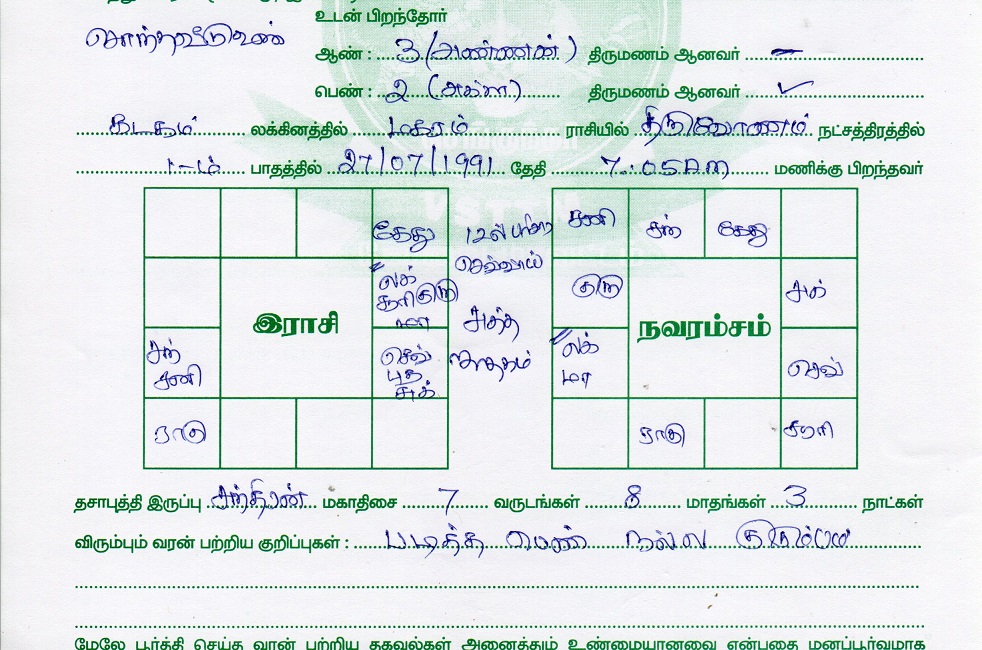 உடன் பிறந்தோர்
சொந்தவீடுஉண்
ஆண் : 3 (அண்ணன்) திருமணம் ஆனவர் –
பெண் : 2 (அக்கா) திருமணம் ஆனவர் ✓
கடகம் லக்கினத்தில் மகரம் ராசியில் திருவோணம் நட்சத்திரத்தில்
1-ம் பாதத்தில் 27/07/1991 தேதி 7.05AM மணிக்கு பிறந்தவர்
கேது
லக்
சூரி குரு
மா
இராசி
சந்
சனி
செவ்
புத
சுக்
ராகு
செவ்வாய்
சுத்த
சனி
சந்
கேது
குரு
சுக்
நவரம்சம்
லக்
மா
செவ்
ராகு
சூரி
தசாபுத்தி இருப்பு சந்திரன் மகாதிசை 7 வருடங்கள் 8 மாதங்கள் 3 நாட்கள்
விரும்பும் வரன் பற்றிய குறிப்புகள் : படித்த பெண் நல்ல குடும்பம்
மேலே பூர்த்தி செய்த வரன் பற்றிய தகவல்கள் அனைத்தும் உண்மையானவை என்பதை மனப்பூர்வமாக